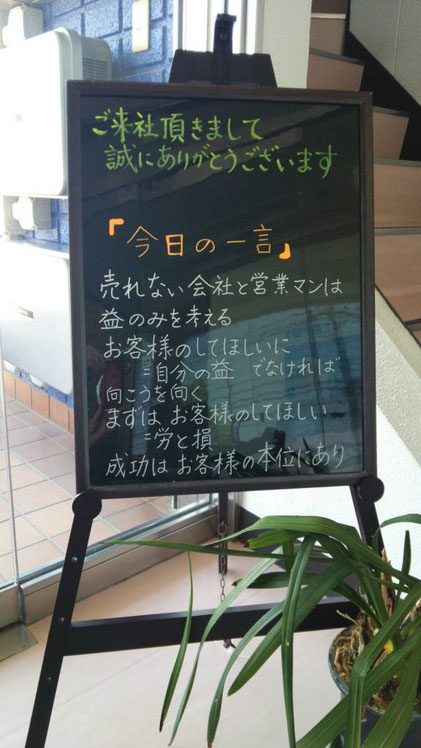 ご来社頂きまして
誠にありがとうございます
「今日の一言」
売れない会社と営業マンは
益のみを考える
お客様のしてほしいに
=自分の益 でなければ
向こうを向く
まずは お客様のしてほしい
=労と損
成功は お客様の本位にあり